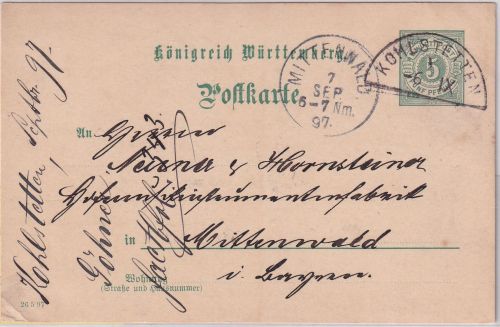 Königreich Württemberg.
Postkarte.
MITTENWALD
7
SEP
6-7 Nm.
97.
KOHLSTETTEN
6 IX
5
FÜNF PFENNIG
An Herren
Neuner & Hornsteiner
Mittenwald
in
i. Bayern.
Wohnung
(Straße und Hausnummer)
26 5 97
Kohlstetten, Septbr 97.